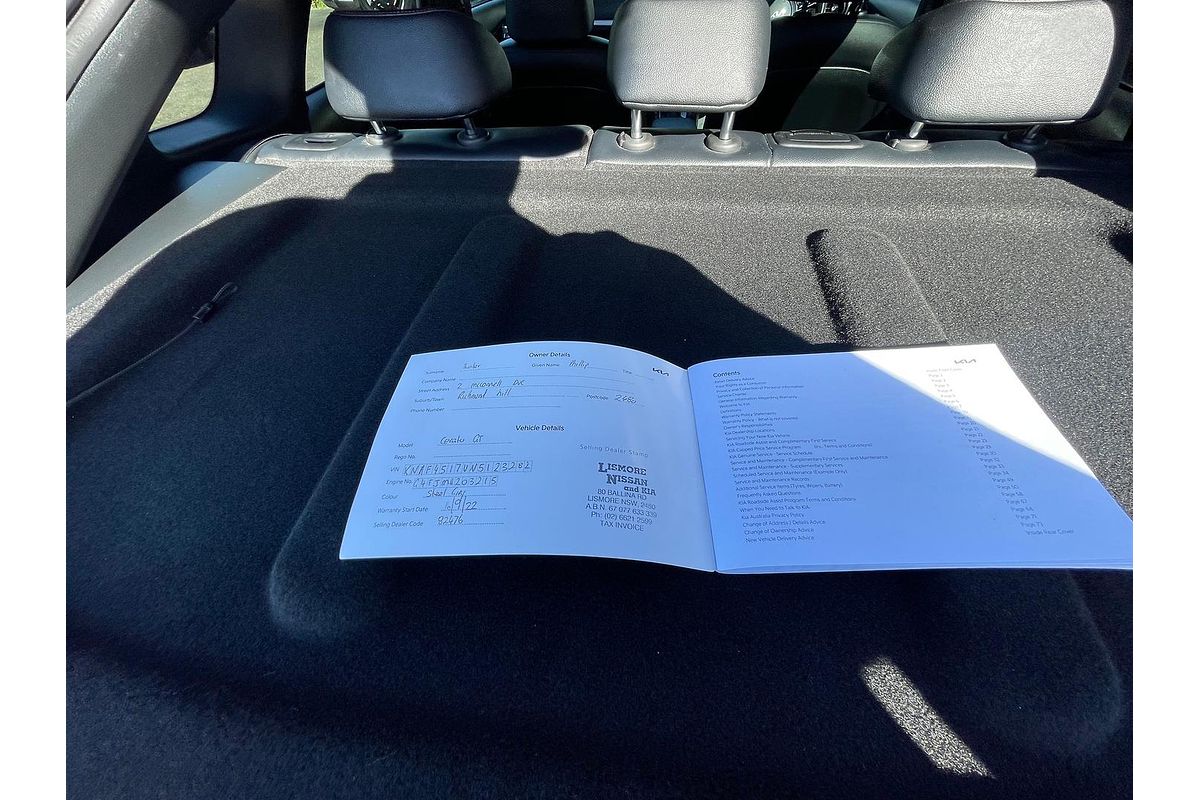 Owner Details
KIA
Surname
Given Name Phillip
Title
Company Name
Street Address 2 McDonnell Dve
Suburb/Town Richmond Hill Postcode 2480
Phone Number
Vehicle Details
Model Cerato GT
Rego No.
VIN
Engine No. G4FJMU203215
Colour Steel Grey
Warranty Start Date 16/9/22
Selling Dealer Code 82476
Selling Dealer Stamp
LISMORE
NISSAN
and KIA
80 BALLINA RD
LISMORE NSW, 2480
A.B.N. 67 077 633 339
Ph: (02) 6621 2599
TAX INVOICE
KIA
Contents
Retail Delivery Advice Inside Front Cover
Your Rights as a Consumer Page 1
Privacy and Collection of Personal Information
Service Charter
General Information Regarding Warranty
Welcome to KIA
Definitions
Warranty Policy Statements
Warranty Policy - What is not covered
Owner's Responsibilities
KIA Dealership Locations
Servicing Your New Kia Vehicle
KIA Roadside Assist and Complimentary First Service
KIA Capped Price Service Program (inc. Terms and Conditions)
KIA Genuine Service - Service Schedule
Service and Maintenance - Complimentary First Service and Maintenance
Service and Maintenance - Supplementary Services
Scheduled Service and Maintenance (Example Only)
Service and Maintenance Records
Additional Service Items (Tyres, Wipers, Battery)
Frequently Asked Questions
KIA Roadside Assist Program Terms and Conditions
When You Need to Talk to KIA
Kia Australia Privacy Policy
Change of Address / Details Advice
Change of Ownership Advice Page 73
New Vehicle Delivery Advice Inside Rear Cover